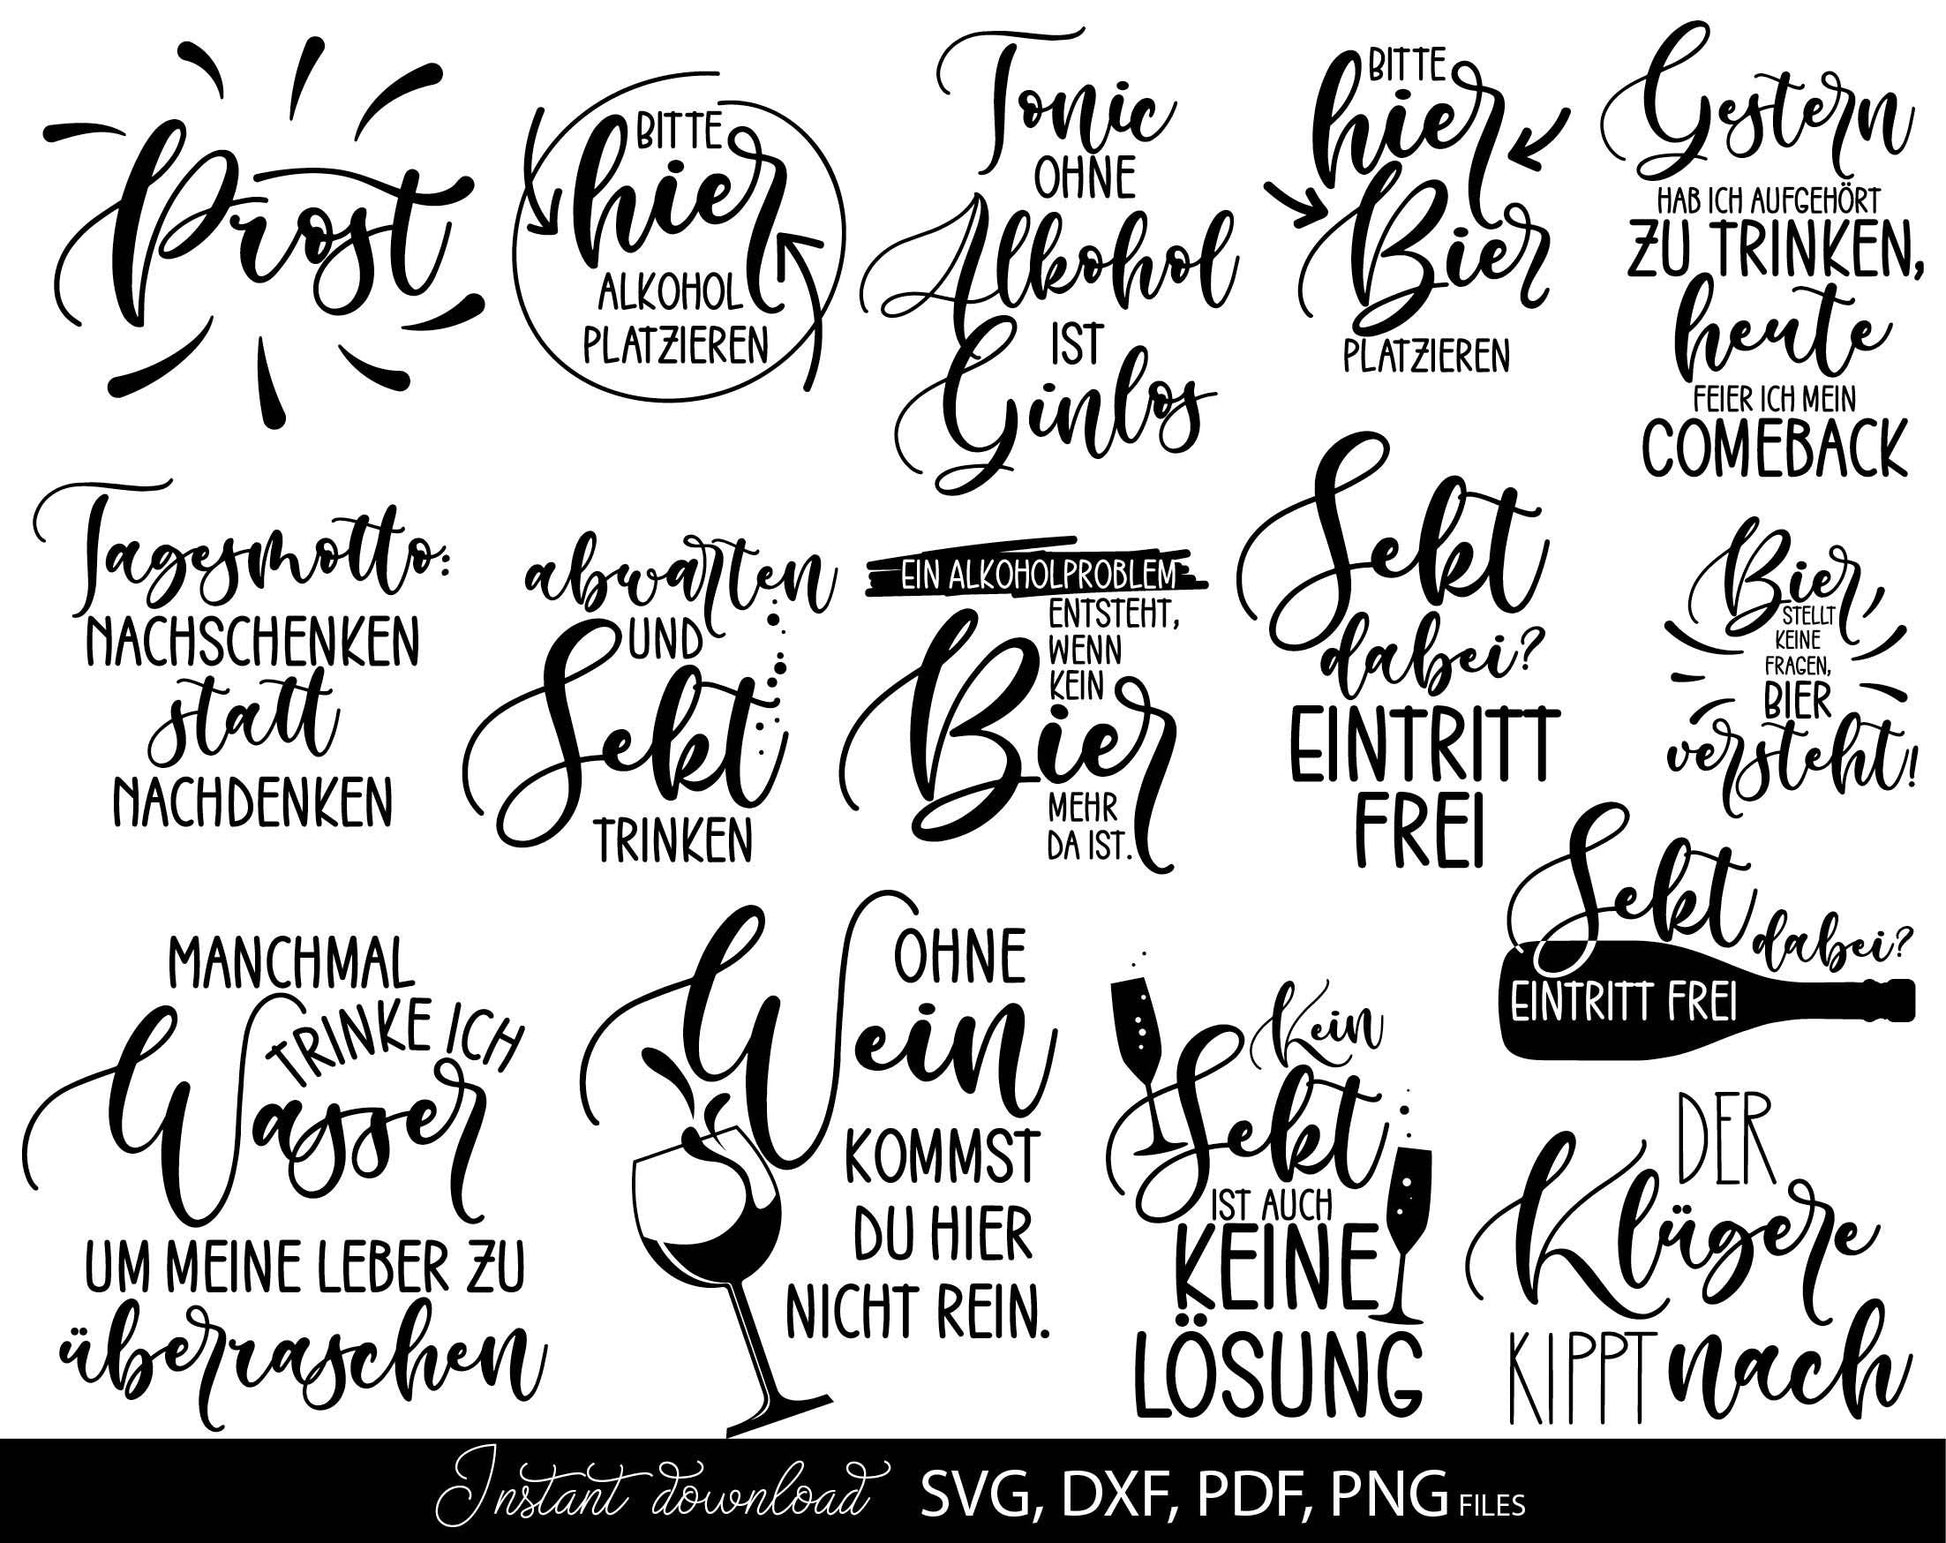 Prost
BITTE
hier
ALKOHOL
PLATZIEREN
Tonic
OHNE
Alkohol
IST
Ginlos
BITTE
hier
Bier
PLATZIEREN
Gestern
HAB ICH AUFGEHÖRT
ZU TRINKEN,
heute
FEIER ICH MEIN
COMEBACK
Tagesmotto:
NACHSCHENKEN
statt
NACHDENKEN
abwarten
UND
Sekt
TRINKEN
EIN ALKOHOLPROBLEM
ENTSTEHT,
WENN
KEIN
Bier
MEHR
DA IST.
Sekt
dabei?
EINTRITT
FREI
Bier
STELLT
KEINE
FRAGEN,
BIER
versteht!
MANCHMAL
TRINKE ICH
Wasser
UM MEINE LEBER ZU
überraschen
OHNE
Wein
KOMMST
DU HIER
NICHT REIN.
Kein
Sekt
IST AUCH
KEINE
LÖSUNG
Sekt
dabei?
EINTRITT FREI
DER
Klügere
KIPPT nach
Instant download SVG, DXF, PDF, PNG FILES